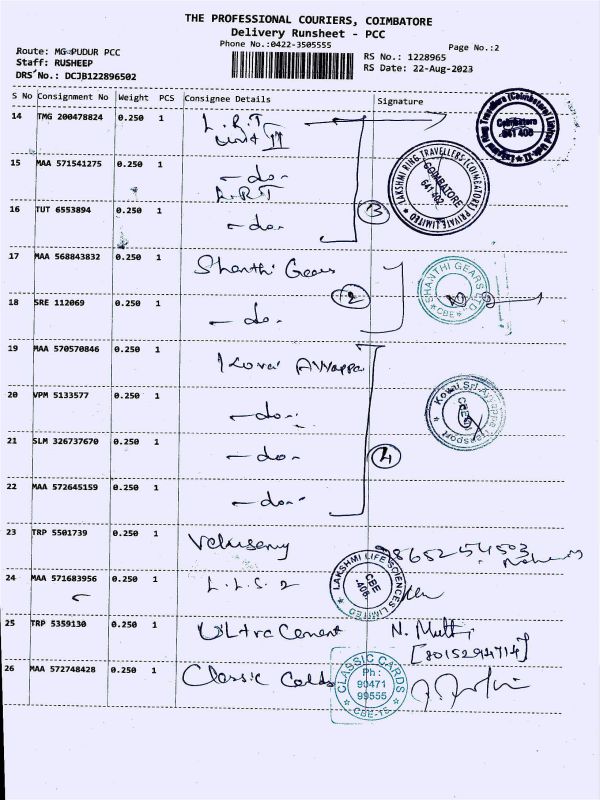 THE PROFESSIONAL COURIERS, COIMBATORE
Delivery Runsheet - PCC
Phone No.:0422-3505555
Page No.:2
Route: MG PUDUR PCC
Staff: RUSHEEP
DRS No.: DCJB122896502
RS No.: 1228965
RS Date: 22-Aug-2023
S No Consignment No Weight PCS Consignee Details Signature
14 TMG 200478824 0.250 1 L.R.T
unit II
Coimbatore
641 406
15 MAA 571541275 1 - do -
L.R.T
LAKSHMI RING TRAVELLERS (COIMBATORE) PRIVATE LIMITED
COIMBATORE
641 402
16 TUT 6553894 0.250 1 - do -
3
17 MAA 568843832 0.250 1 Shanthi Gears
SHANTHI GEARS LTD
CBE
2
18 SRE 112069 0.250 1 - do -
19 MAA 570570846 0.250 1 Kovai Ayyappa
20 VPM 5133577 0.250 1 - do -
Kovai Sri Ayyappa Transport
CBE
21 SLM 326737670 0.250 1 - do -
4
22 MAA 572645159 0.250 1 - do -
23 TRP 5501739 0.250 1 Velusamy
24 MAA 571683956 0.250 1 L.L.S 2
LAKSHMI LIFE SCIENCES LIMITED
CBE
-406
25 TRP 5359130 0.250 1 ULtra Cement N. Muthu
[8015294714]
26 MAA 572748428 0.250 1 Classic Cards
CLASSIC CARDS
Ph :
90471
99555
CBE-TS